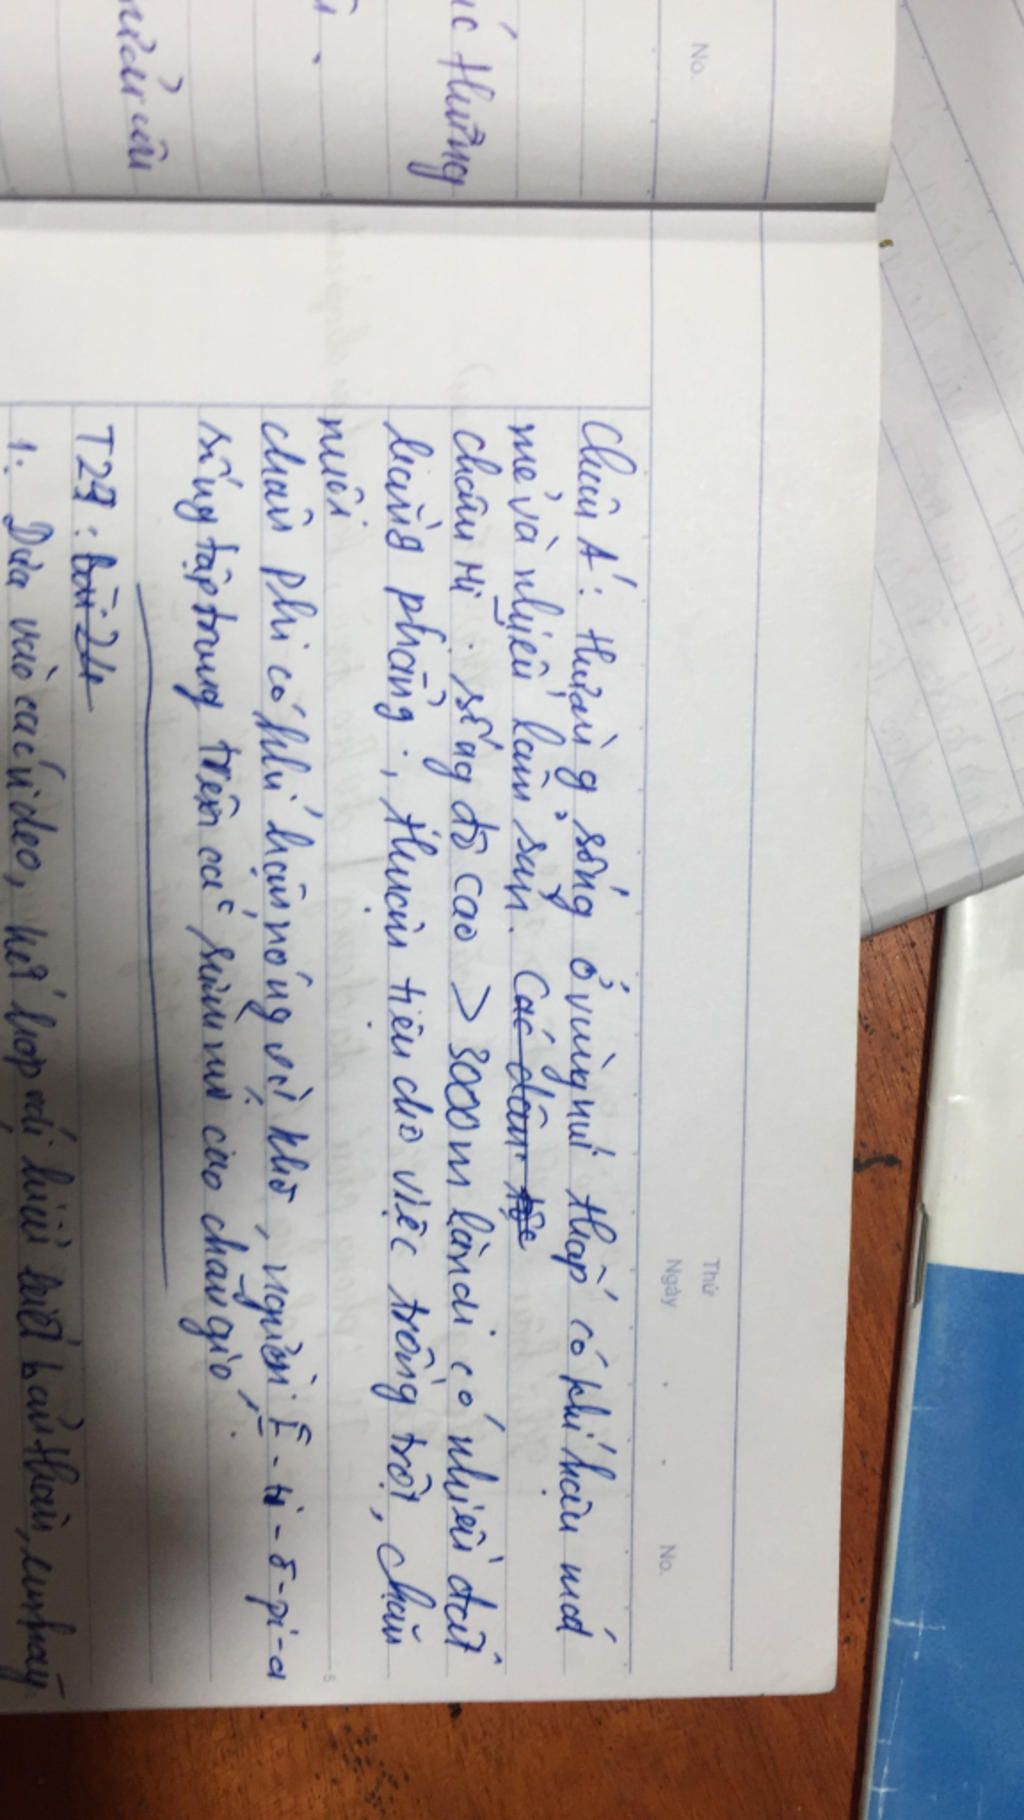 No.
Thứ
Ngày
No.
Châu Á: thường sống ở vùng núi thấp có khí hậu mát
mẻ và nhiều lâm sản. Các dân tộc
châu Mĩ: sống độ cao > 3000m là nơi có nhiều đất
bằng phẳng, thuận tiện cho việc trồng trọt, chăn
nuôi
châu phi có khí hậu nóng và khô, người Ê-ti-ô-pi-a
sống tập trung trên các sườn núi cao chắn gió.
T29: bài 24
1. Dựa vào các video, kết hợp với hiểu biết bản thân,